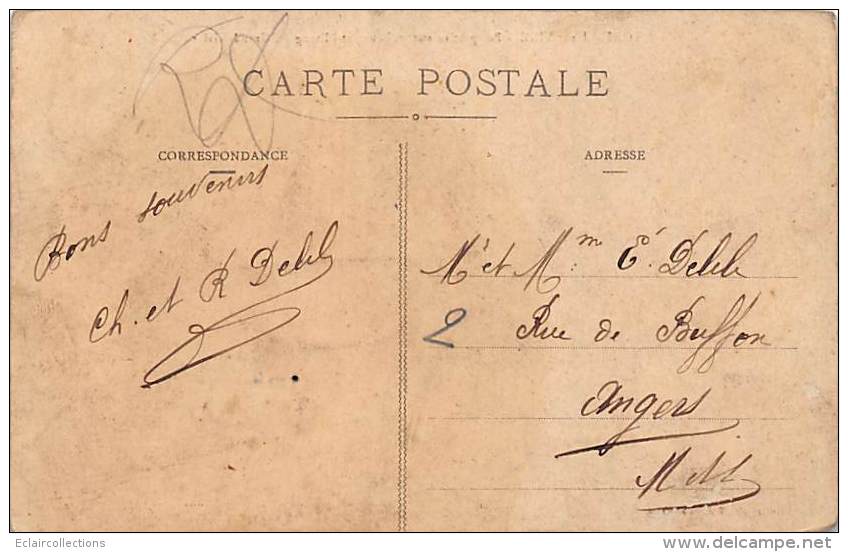 CARTE POSTALE
CORRESPONDANCE
ADRESSE
Bons souvenirs
Ch. et R Delile
Mr et Mm E. Delile
2 Rue de Buffon
Angers
M et L
Eclaircollections
delcampe.net